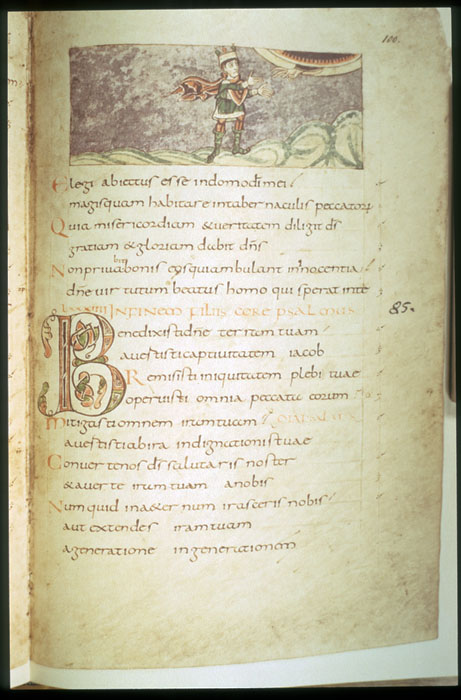 100.
Elegi abiectus esse indomodi mei
magisquam habitare intabernaculis peccatorū
Quia misericordiam &ueritatem diligit d̄s
gratiam &gloriam dabit dn̄s
Nonpriuabonis eosquiambulant ininnocentia
dn̄e uirtutum beatus homo qui sperat inte
INFINEM FILIIS CORE PSALMUS
85.
Benedixisti dn̄e terram tuam
auertisti captiuitatem iacob
Remisisti iniquitatem plebi tuae
operuisti omnia peccata eorum
Mitigasti omnem iram tuam
auertisti abira indignationis tuae
Conuertenos d̄s salutaris noster
&auerte iram tuam anobis
Numquid in&ernum irasceris nobis
aut extendes iram tuam
ageneratione ingenerationem